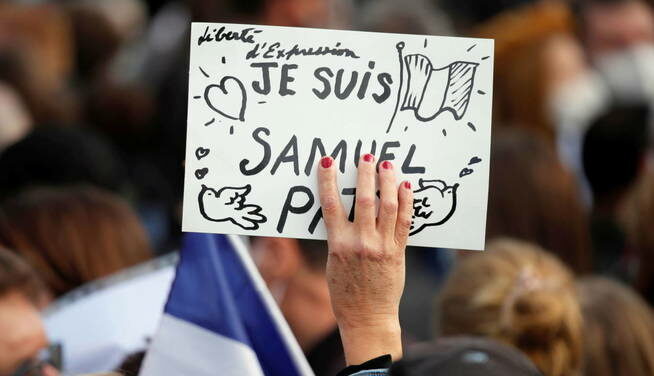 Liberté
d'Expression
JE SUiS
SAMUEL
PAT